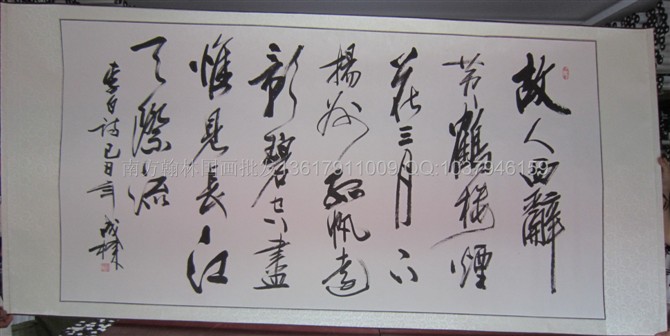 故人西辭
黄鶴楼煙
花三月下
揚州孤帆遠
影碧空盡
惟見長江
天際流
李白詩
南方翰林国画批发13617911009 QQ:1037946159